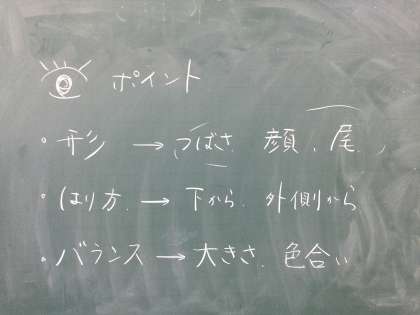 ポイント
・形 → つばさ、顔、尾、
・はり方. → 下から. 外側から
・バランス → 大きさ. 色合い